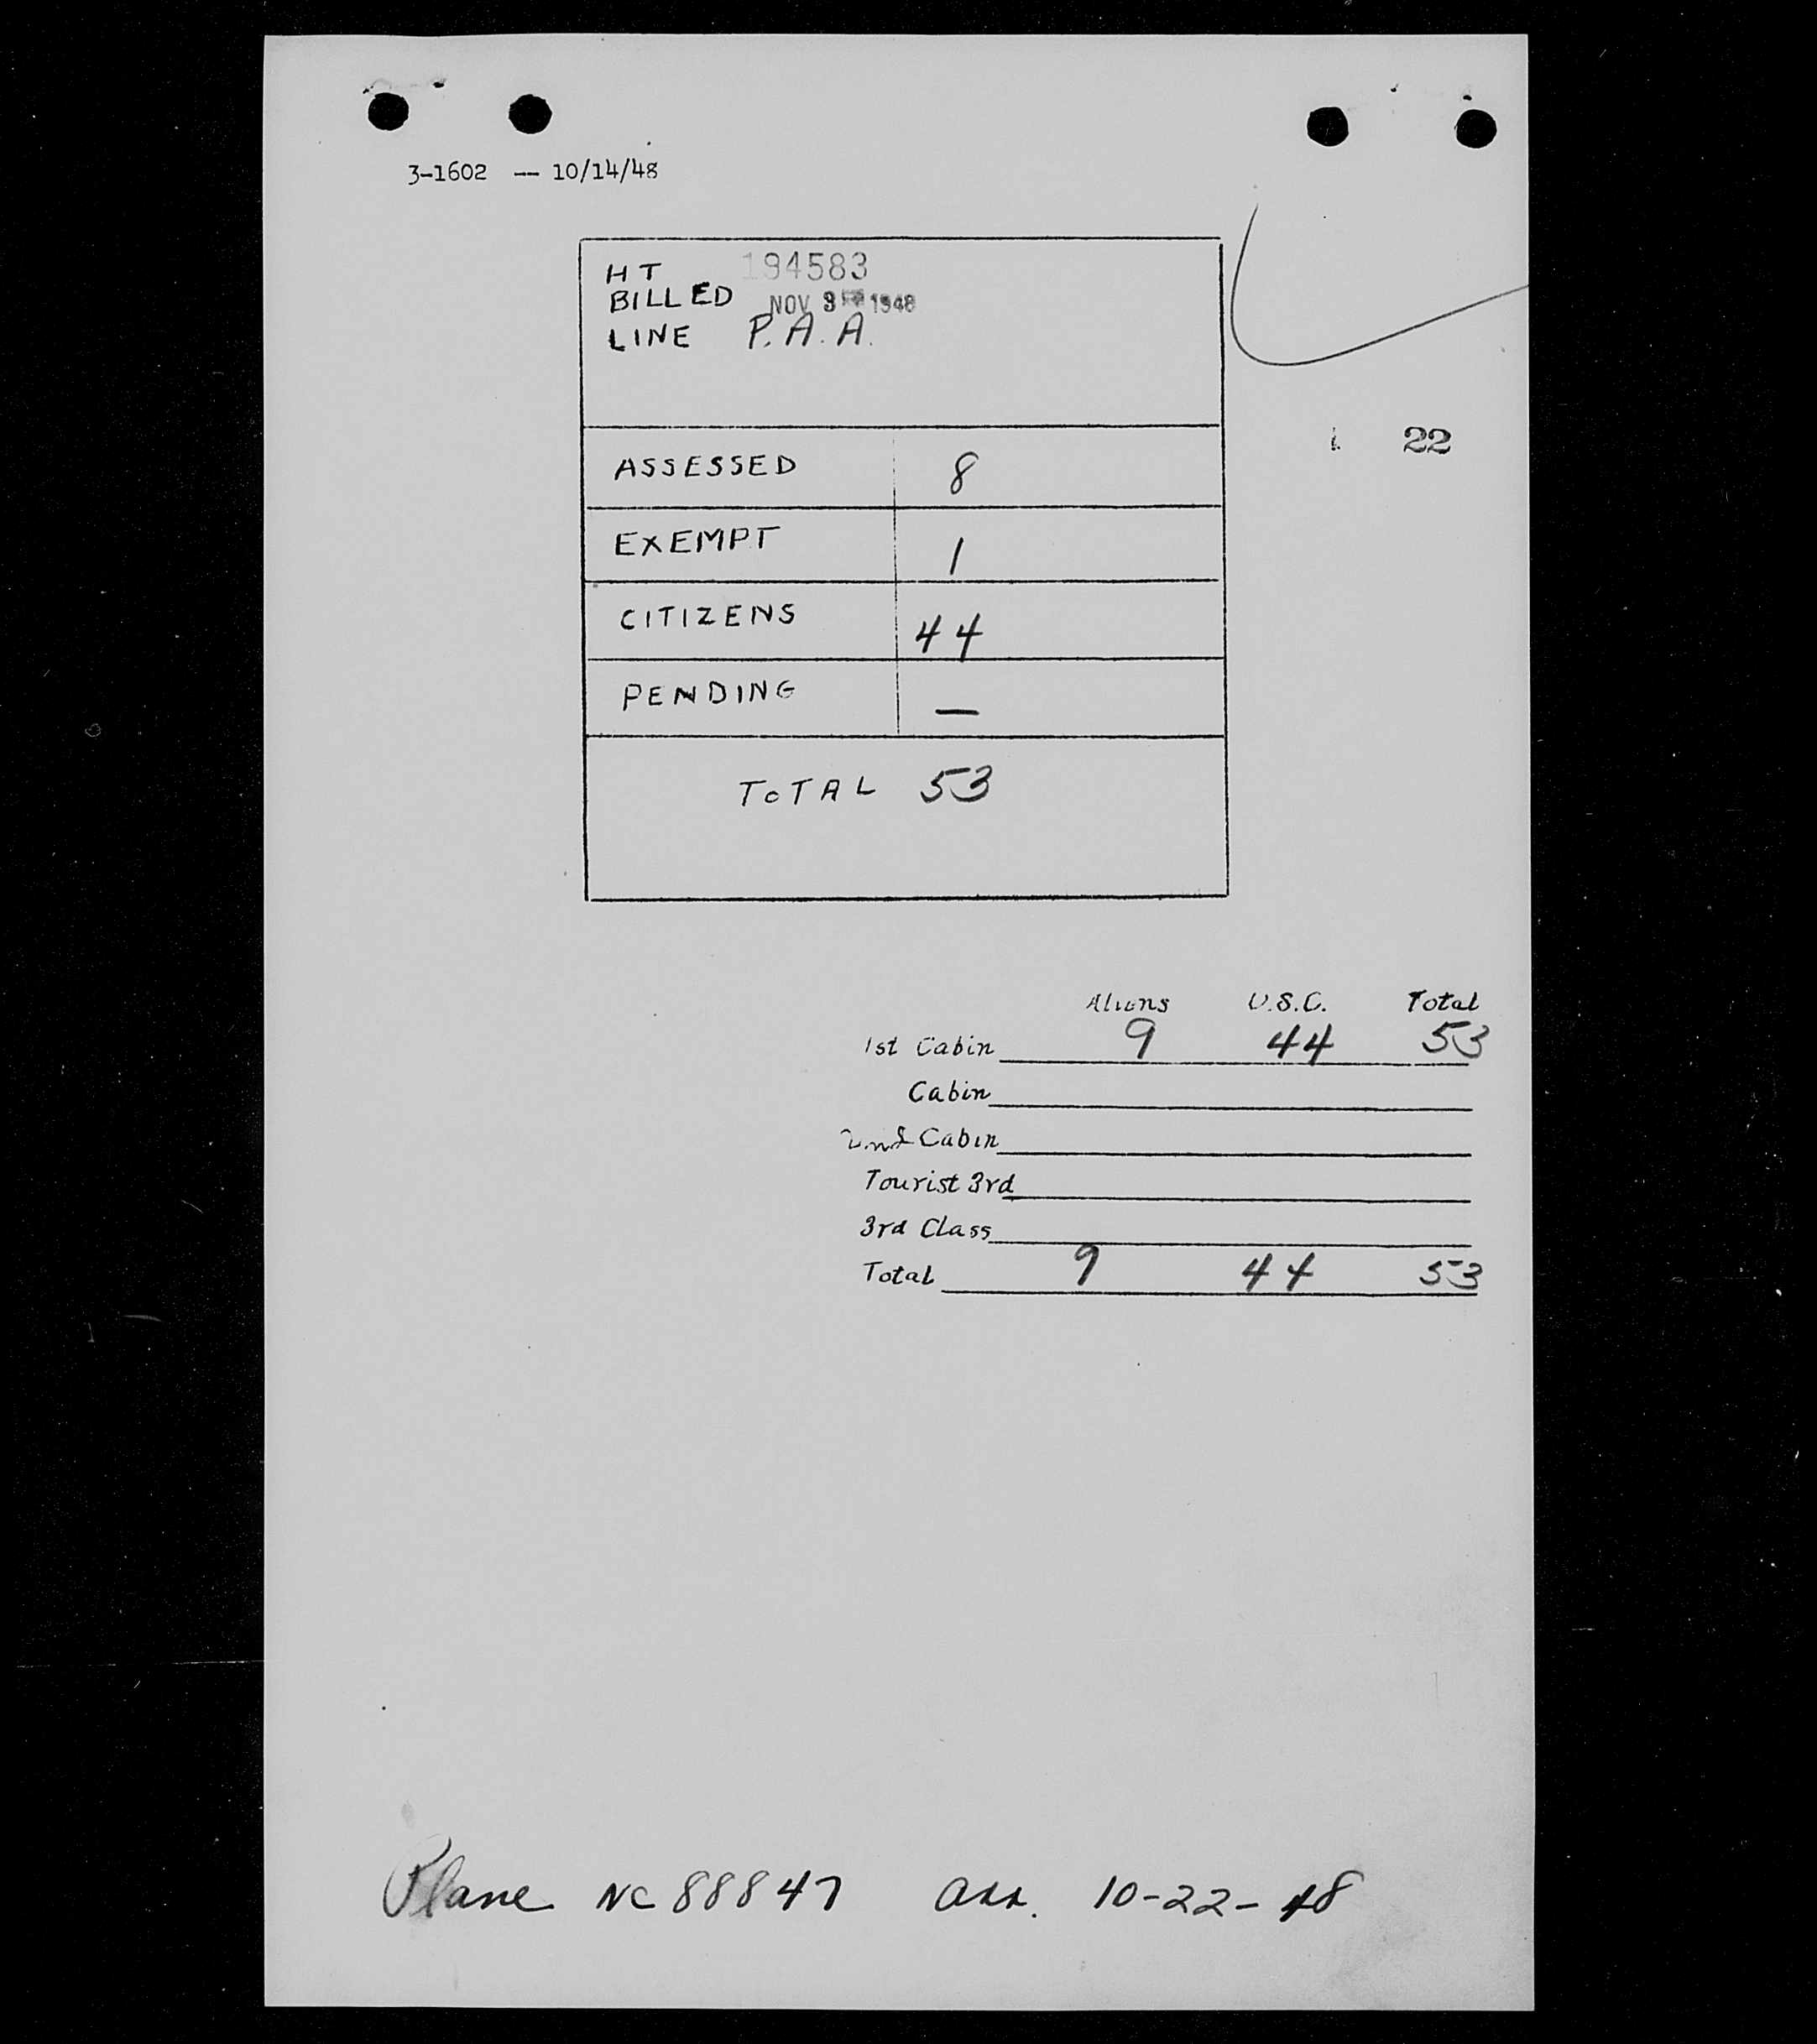 3-1602 -- 10/14/48
HT 194583
BILLED NOV 3 1948
LINE P.A.A.
22
ASSESSED 8
EXEMPT 1
CITIZENS 44
PENDING —
TOTAL 53
Aliens U.S.C. Total
1st Cabin 9 44 53
Cabin
2nd Cabin
Tourist 3rd
3rd Class
Total 9 44 53
Plane NC 88847 arr. 10-22-48